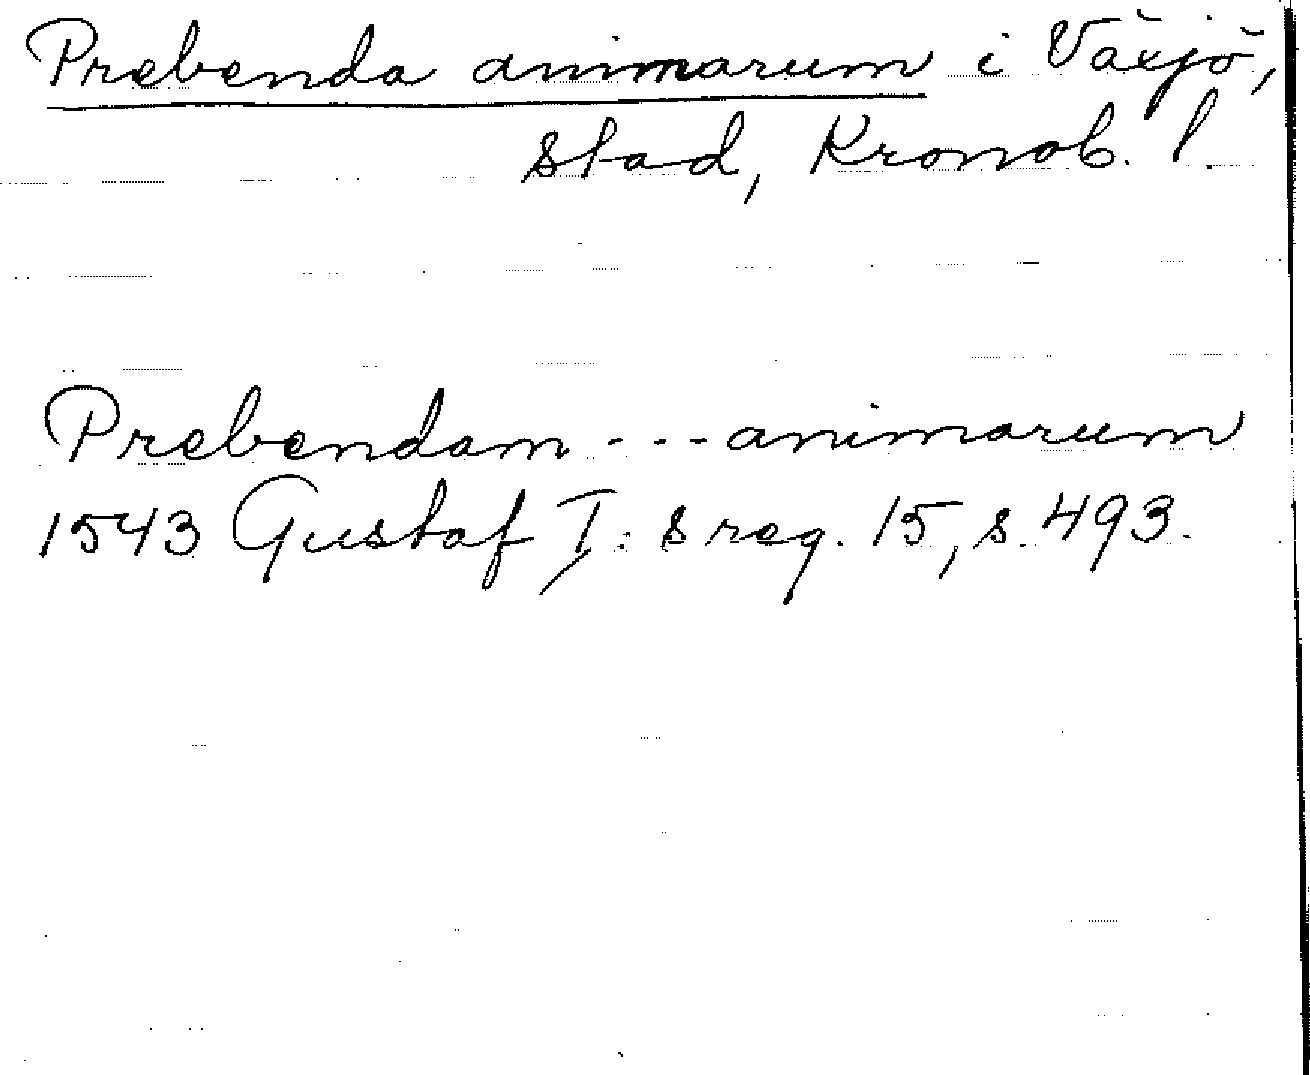 Prebenda animarum i Växjö,
stad, Kronob. l.
Prebendam --- animarum
1543 Gustaf I:s reg. 15, s. 493.